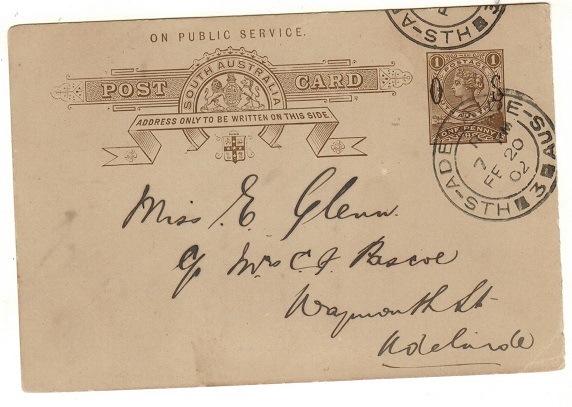 ON PUBLIC SERVICE.
POST CARD
SOUTH AUSTRALIA
ADDRESS ONLY TO BE WRITTEN ON THIS SIDE.
1 POSTAGE 1
ONE PENNY
ADELAIDE-STH-AUS
7
FE 20
02
3
A-STH 3
Miss E. Glenn.
c/o Mrs C. J. Pascoe
Waymouth St
Adelaide